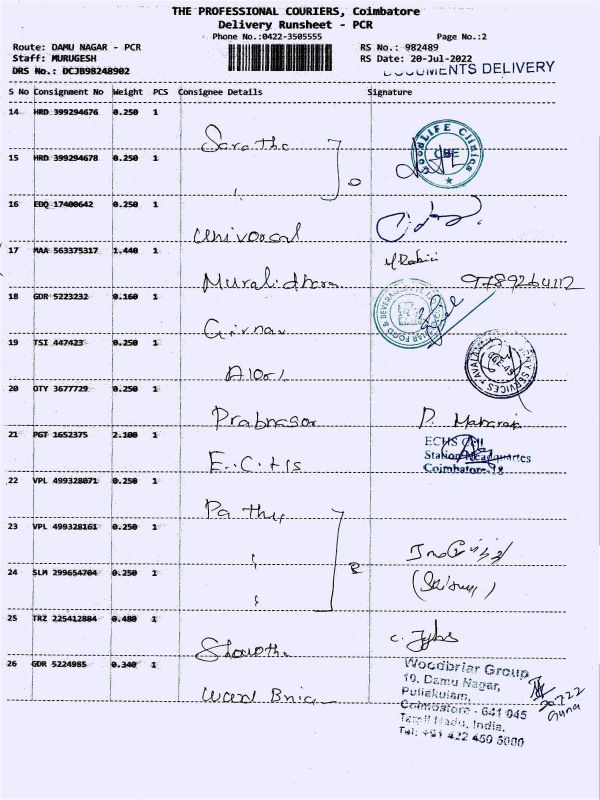 THE PROFESSIONAL COURIERS, Coimbatore
Delivery Runsheet - PCR
Phone No.:0422-3505555
Page No.:2
Route: DAMU NAGAR - PCR
RS No.: 982489
Staff: MURUGESH
RS Date: 20-Jul-2022
DRS No.: DCJB98248902
DOCUMENTS DELIVERY
S No Consignment No Weight PCS Consignee Details Signature
14 HRD 399294676 0.250 1
GOODLIFE Clinics
CBE
15 HRD 399294678 0.250 1
16 EDQ 17400642 0.250 1
Universal
17 MAA 563375317 1.440 1
Muralidhara
18 GDR 5223232 0.160 1
Girnar
FOOD & BEVERAGES
19 TSI 447423 0.250 1
SERVICES
20 OTY 3677729 0.250 1
21 PGT 1652375 2.100 1
E.C.H.S
ECHS
Station Headquarters
Coimbatore-18
22 VPL 499328071 0.250 1
Pathy
23 VPL 499328161 0.250 1
24 SLM 299654704 0.250 1
25 TRZ 225412884 0.480 1
26 GDR 5224985 0.340 1
Wood Briar
Woodbriar Group
10, Damu Nagar,
Puliakulam,
Coimbatore - 641 045
Tamil Nadu, India.
Tel: +91 422 450 5000
20722
Guna